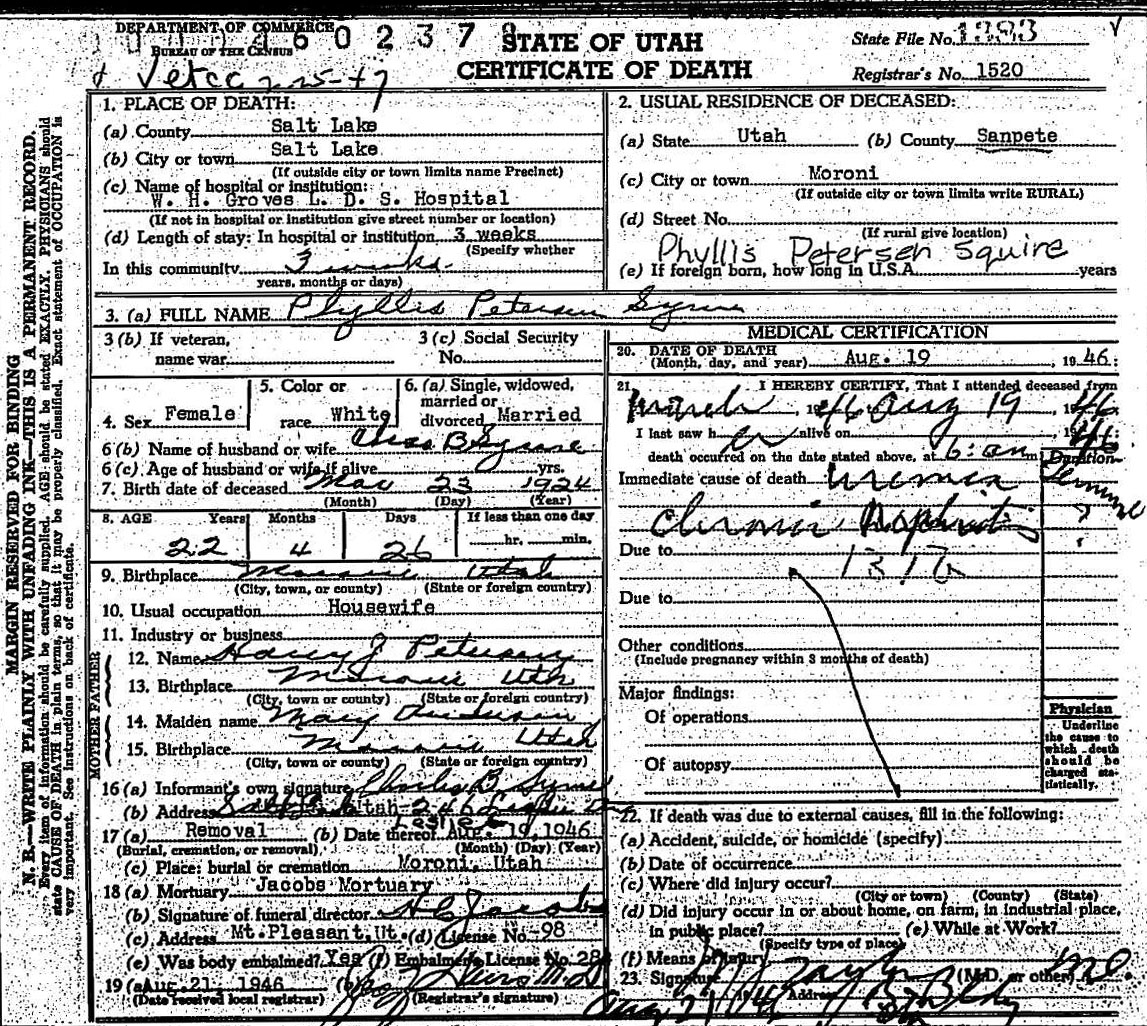 DEPARTMENT OF COMMERCE
BUREAU OF THE CENSUS
6 0 2 3 7
STATE OF UTAH
CERTIFICATE OF DEATH
State File No.
Registrar's No. 1520
MARGIN RESERVED FOR BINDING
N. B.—WRITE PLAINLY WITH UNFADING INK—THIS IS A PERMANENT RECORD.
Every item of information should be carefully supplied. AGE should be stated EXACTLY. PHYSICIANS should
state CAUSE OF DEATH in plain terms, so that it may be properly classified. Exact statement of OCCUPATION is
very important. See instructions on back of certificate.
1. PLACE OF DEATH:
(a) County Salt Lake
(b) City or town Salt Lake
(If outside city or town limits name Precinct)
(c) Name of hospital or institution:
W. H. Groves L. D. S. Hospital
(If not in hospital or institution give street number or location)
(d) Length of stay: In hospital or institution 3 weeks
(Specify whether
In this community 3 weeks
years, months or days)
2. USUAL RESIDENCE OF DECEASED:
(a) State Utah (b) County Sanpete
(c) City or town Moroni
(If outside city or town limits write RURAL)
(d) Street No.
(If rural give location)
Phyllis Petersen Squire
(e) If foreign born, how long in U.S.A. years
3. (a) FULL NAME Phyllis Petersen
3 (b) If veteran, name war
3 (c) Social Security No.
4. Sex Female
5. Color or race White
6. (a) Single, widowed, married or divorced Married
6 (b) Name of husband or wife Chas B
6 (c) Age of husband or wife if alive yrs.
7. Birth date of deceased Mar 23 1924
(Month) (Day) (Year)
8. AGE Years Months Days If less than one day
22 4 26 hr. min.
9. Birthplace Moroni Utah
(City, town, or county) (State or foreign country)
10. Usual occupation Housewife
11. Industry or business
FATHER
12. Name Harvey J Petersen
13. Birthplace Moroni Utah
(City, town or county) (State or foreign country)
MOTHER
14. Maiden name Mary Andersen
15. Birthplace Moroni Utah
(City, town or county) (State or foreign country)
16 (a) Informant's own signature Charles B
(b) Address Utah 246
Leslie
17 (a) Removal (b) Date thereof Aug. 19, 1946
(Burial, cremation, or removal) (Month) (Day) (Year)
(c) Place: burial or cremation Moroni, Utah
18 (a) Mortuary Jacobs Mortuary
(b) Signature of funeral director H C Jacobs
(c) Address Mt. Pleasant, Ut. (d) License No. 98
(e) Was body embalmed? Yes (f) Embalmer's License No. 284
19 (a) Aug. 21, 1946 (b) M.D.
(Date received local registrar) (Registrar's signature)
MEDICAL CERTIFICATION
20. DATE OF DEATH
(Month, day, and year) Aug. 19, 1946
21. I HEREBY CERTIFY, That I attended deceased from
March 1946 Aug 19 1946
I last saw h er alive on 1946
death occurred on the date stated above, at 6: am
Duration
Immediate cause of death Uremia
Chronic Nephritis ?
Due to
Due to
Other conditions
(Include pregnancy within 3 months of death)
Major findings:
Of operations
Of autopsy
Physician
Underline
the cause to
which death
should be
charged sta-
tistically.
22. If death was due to external causes, fill in the following:
(a) Accident, suicide, or homicide (specify)
(b) Date of occurrence
(c) Where did injury occur?
(City or town) (County) (State)
(d) Did injury occur in or about home, on farm, in industrial place,
in public place? (e) While at Work?
(Specify type of place)
(f) Means of injury
23. Signature Taylor (M.D. or other) MD.
Address